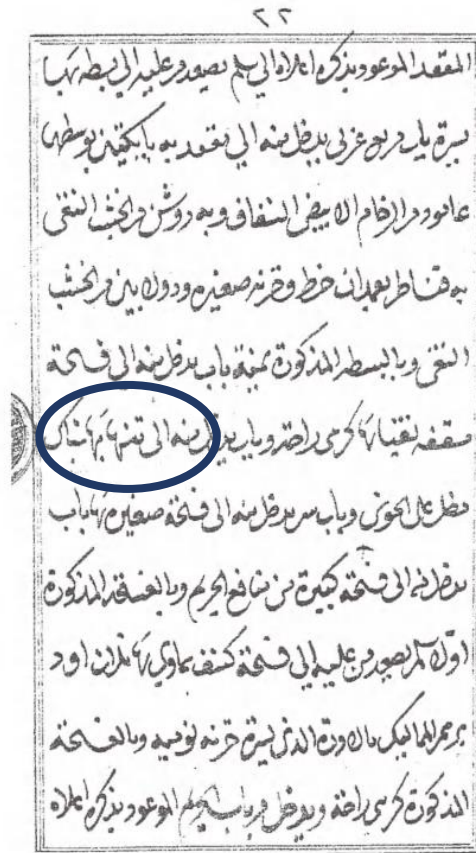 ٢٢
المقعد الموعود بذكره اعلاه الى سلم يصعد من عليه الى بسطه بها
يسرة باب مربع عربى يدخل منه الى مقعد به بايكتين بوسطها
عامود من الرخام الابيض الشفاف وبه دروش من الخشب النقى
به قناطر بعمدان خرط وخزنه صغيره ودولابين من الخشب
النقى وبالبسطه المذكورة يمنة باب يدخل منه الى فسحة
سقفه نقيا بها كرسى راحة وباب يدخل منه الى تنهه بها شباك
مطل على الحوش وباب سر يدخل منه الى فسحة صغيره بها باب
يدخل منه الى فسحة كبيرة من منافع الحريم وبالفسحة المذكورة
اول سلم يصعد من عليه الى فسحة كشف سماوى بها ثلاث اود
برسم المماليك بالاودة الذى يسرة خزنه نوميه وبالفسحة
المذكورة كرسى راحة ويدخل من باب السلم الموعود بذكره اعلاه